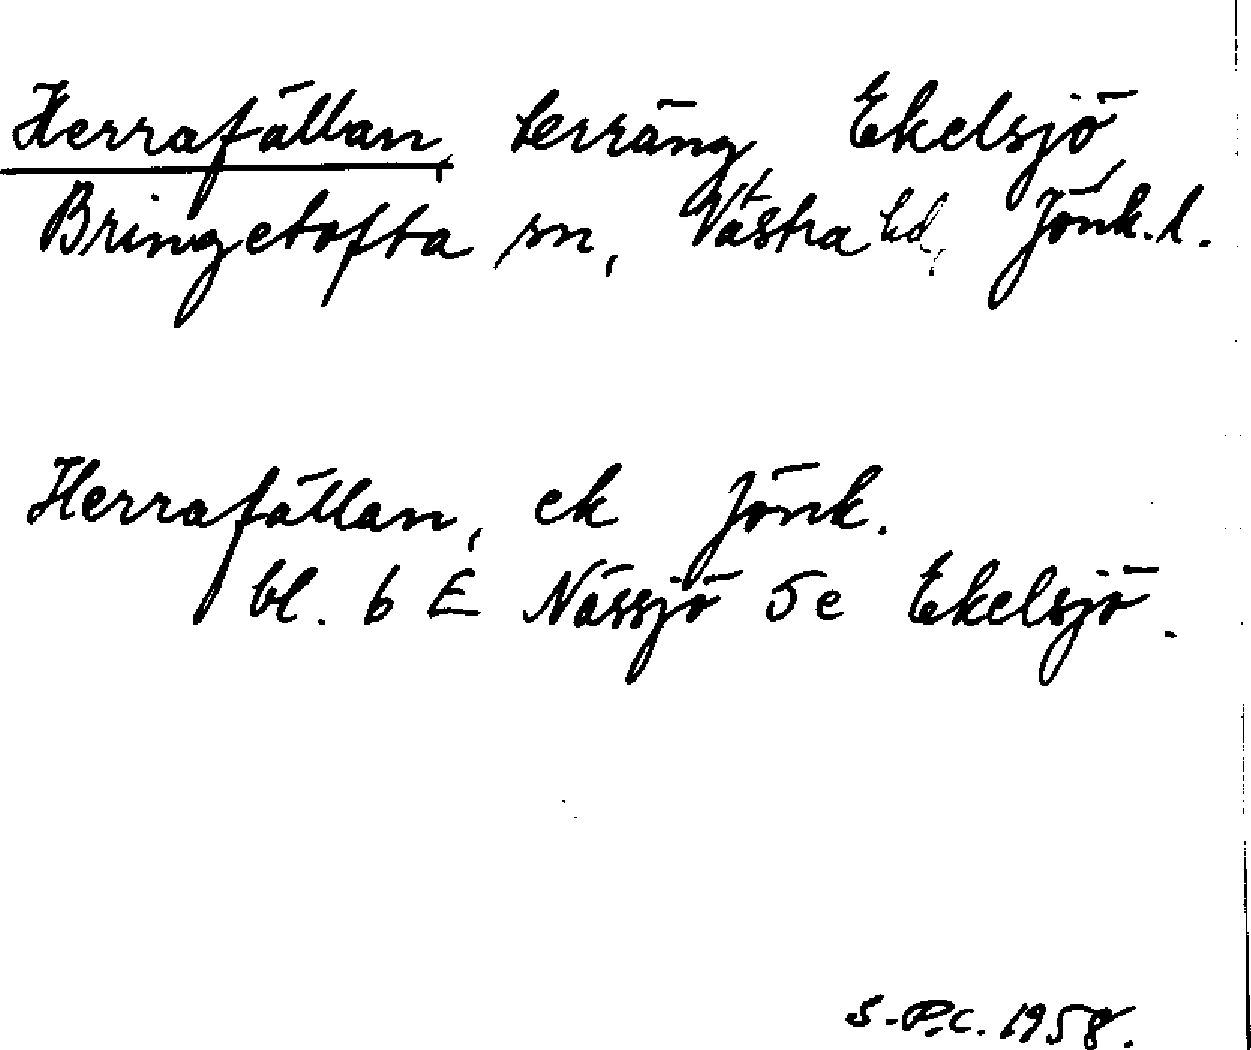 Herrafällan, terräng, Ekelsjö,
Bringetofta sn, Västra hd, Jönk. l.
Herrafällan, ek Jönk.
bl. 6 E Nässjö 5e Ekelsjö.
S.-P.C. 1958.